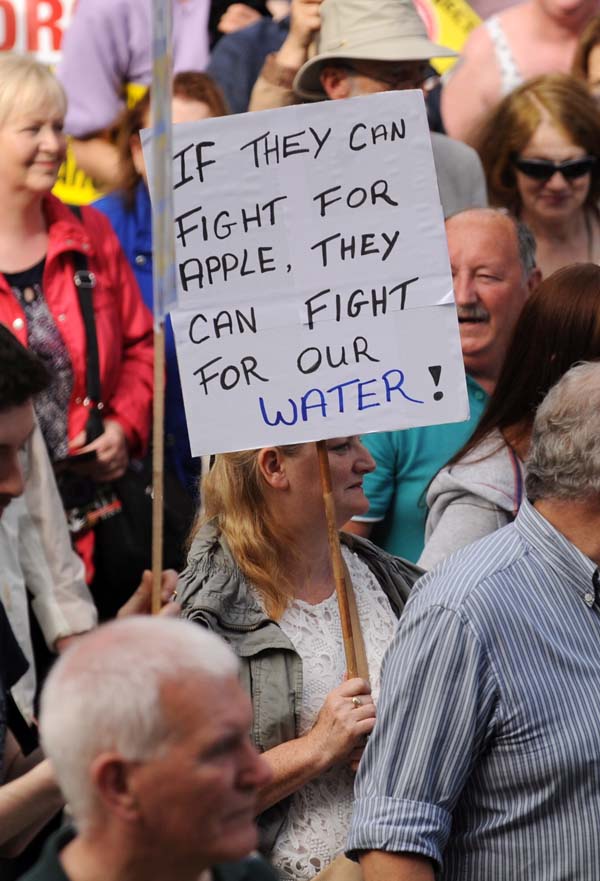 IF THEY CAN
FIGHT FOR
APPLE, THEY
CAN FIGHT
FOR OUR
WATER!